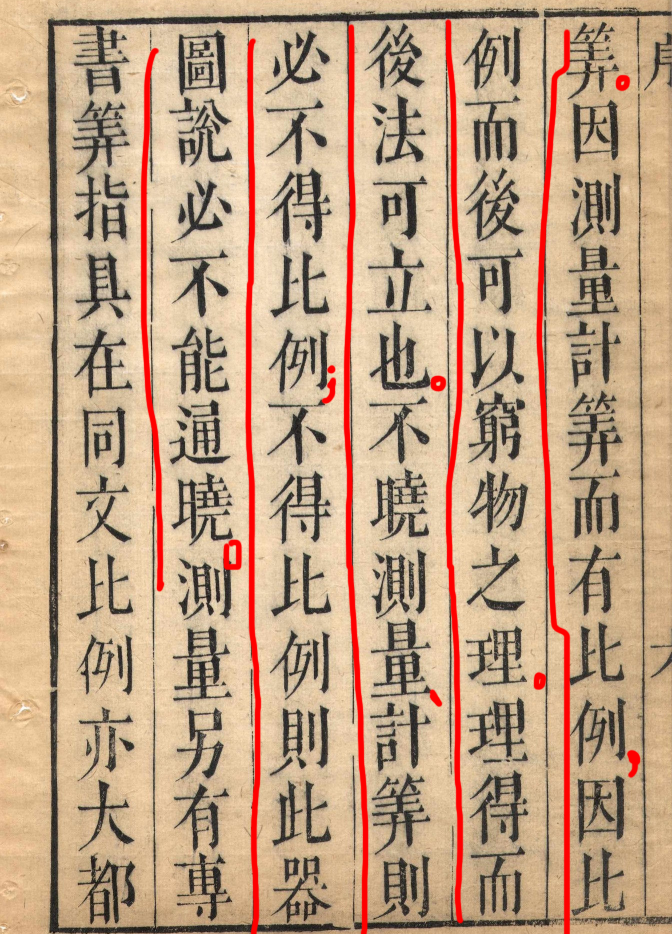 筭。因測量計筭而有比例，因比
例而後可以窮物之理。理得而
後法可立也。不曉測量、計筭則
必不得比例；不得比例則此器
圖說必不能通曉。測量另有專
書筭指具在同文比例亦大都